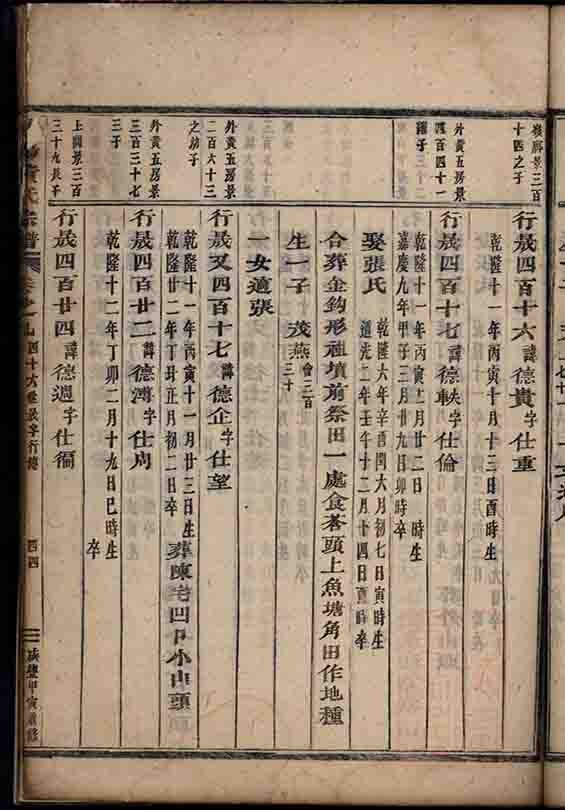 嶺脚景三百
十四之子
行晟四百十六諱德貴字仕重
乾隆十一年丙寅十月十三日酉時生
外黃五房景
四百四十一
行晟四百十七諱德軼字仕倫
乾隆十一年丙寅十一月廿二日 時生
嘉慶九年甲子三月廿九日卯時卒
娶張氏
乾隆六年辛酉閏六月初七日寅時生
道光二年壬午十二月十四日酉時卒
合葬金鈎形祖墳前祭田一處食荅頭上魚塘角田作地種
生一子 茂燕會三百
三十
一女適張
外黃五房景
二百六十三
之幼子
行晟又四百十七諱德企字仕望
乾隆十一年丙寅十一月廿三日生
乾隆廿二年丁丑正月初二日卒
葬陳宅凹 小山頭
外黃五房景
三百三十七
三子
行晟四百廿二諱德濟字仕周
乾隆十二年丁卯二月十九日巳時生
卒
上園景三百
三十九長子
行晟四百廿四諱德週字仕福
氏宗譜
四十六世晟字行傳
四四